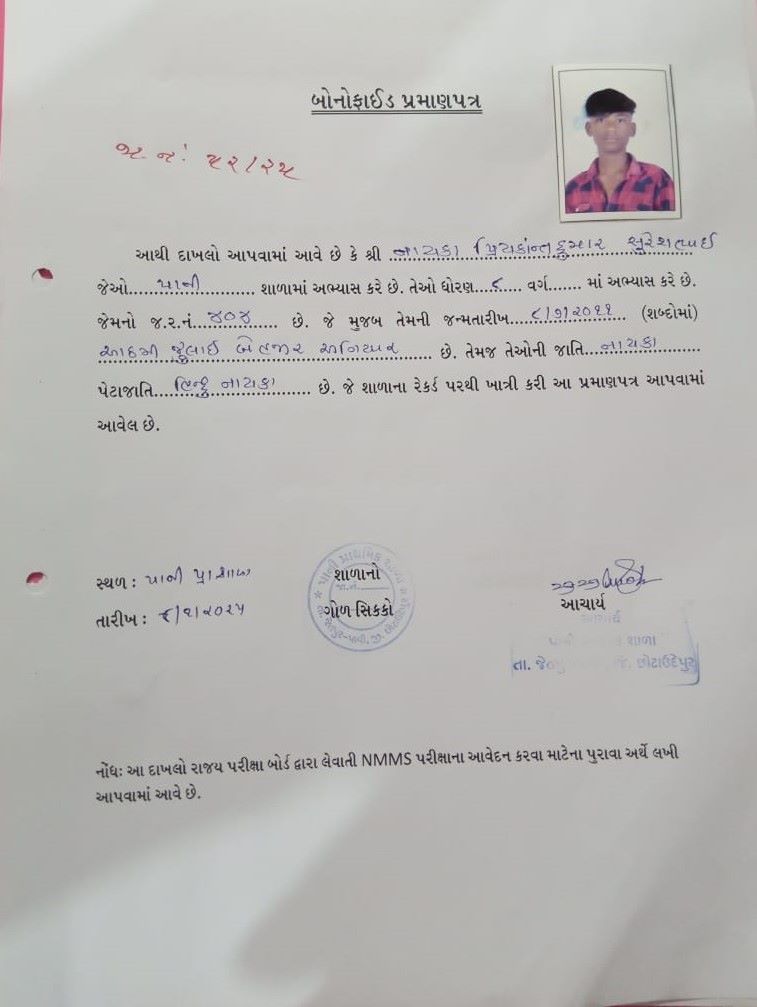 બોનોફાઈડ પ્રમાણપત્ર
જા. નં: ૫૨/૨૫
આથી દાખલો આપવામાં આવે છે કે શ્રી ..નાયકા પ્રિયકાંન્તકુમાર સુરેશભાઈ
જેઓ.......પાની......... શાળામાં અભ્યાસ કરે છે. તેઓ ધોરણ....૮..... વર્ગ....... માં અભ્યાસ કરે છે.
જેમનો જ.ર.નં....૪૦૪....... છે. જે મુજબ તેમની જન્મતારીખ....૮/૭/૨૦૧૧...... (શબ્દોમાં)
આઠમી જુલાઈ બેહજાર અગિયાર ....... છે. તેમજ તેઓની જાતિ....નાયકા.......
પેટાજાતિ....હિન્દુ નાયકા....... છે. જે શાળાના રેકર્ડ પરથી ખાત્રી કરી આ પ્રમાણપત્ર આપવામાં
આવેલ છે.
સ્થળ : પાની પ્રા શાળા
તારીખ : ૬/૧/૨૦૨૫
પાની પ્રાથમિક શાળા
શાળાનો
ગોળ સિક્કો
તા.જેતપુર-પાવી, જી. છોટાઉદેપુર
આચાર્ય
આચાર્ય
શાળા
તા. જે જિ. છોટાઉદેપુર
નોંધ: આ દાખલો રાજય પરીક્ષા બોર્ડ દ્વારા લેવાતી NMMS પરીક્ષાના આવેદન કરવા માટેના પુરાવા અર્થે લખી
આપવામાં આવે છે.